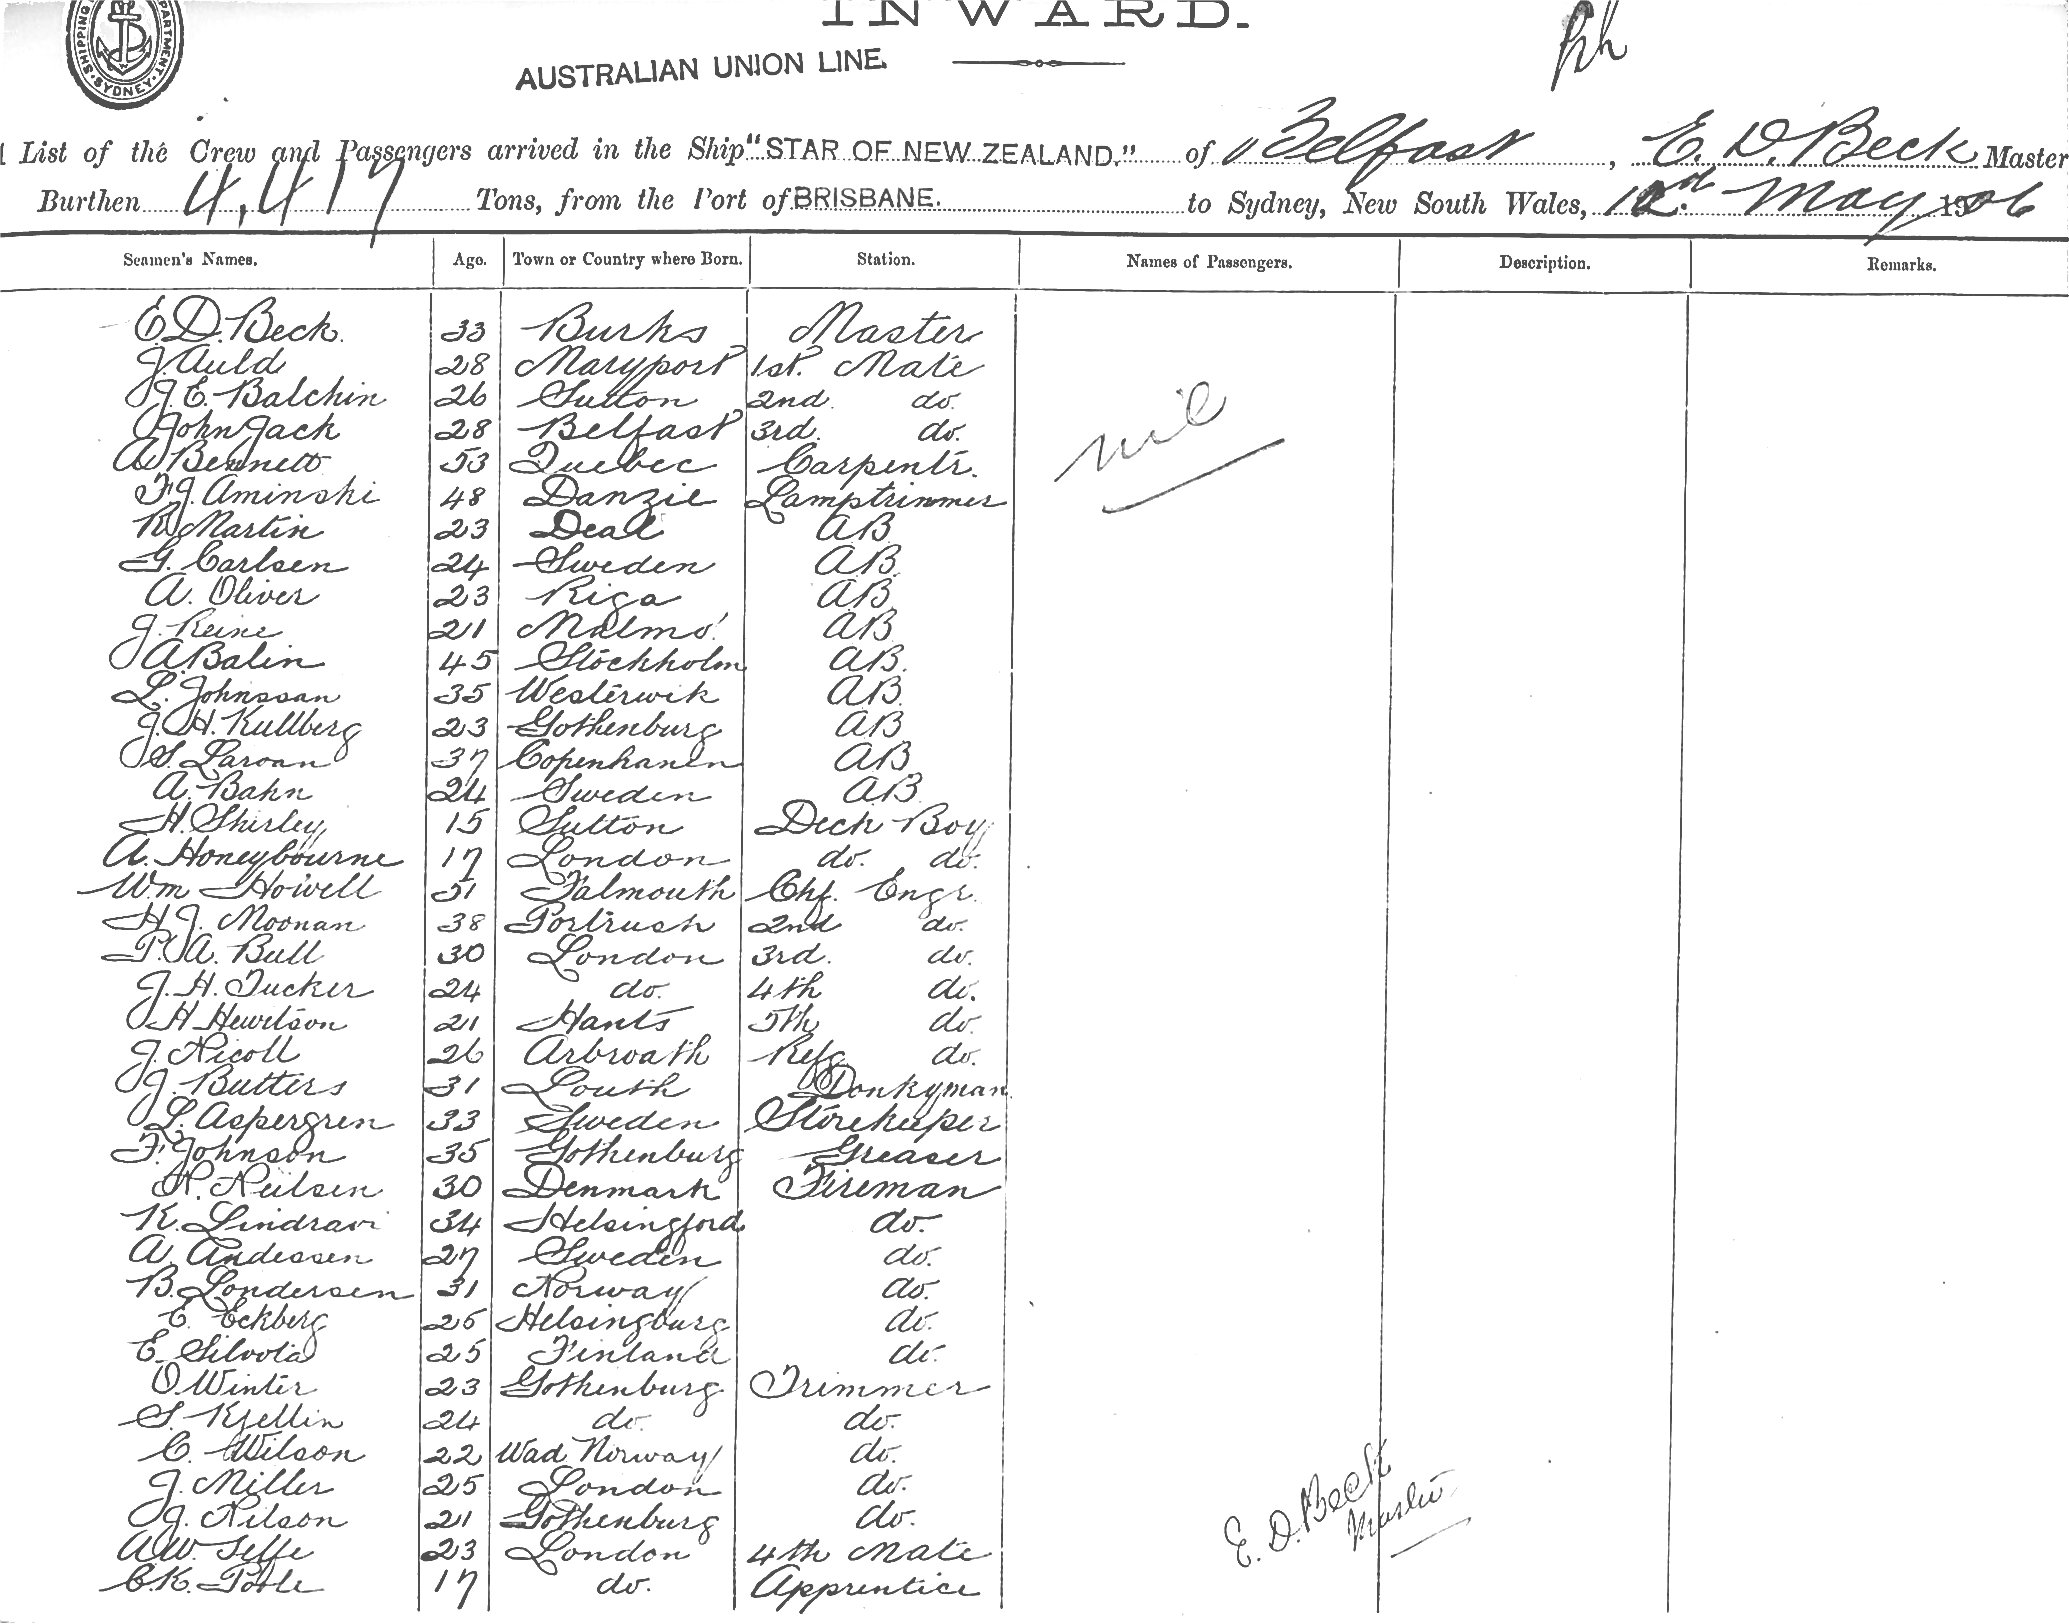 SHIPPING DEPARTMENT. SYDNEY.
INWARD.
AUSTRALIAN UNION LINE.
List of the Crew and Passengers arrived in the Ship "STAR OF NEW ZEALAND." of Belfast, E. D. Beck Master
Burthen 4,417 Tons, from the Port of BRISBANE. to Sydney, New South Wales, May 1906
Seamen's Names. Age. Town or Country where Born. Station. Names of Passengers. Description. Remarks.
E. D. Beck. 33 Burks Master
J. Auld 28 Maryport 1st. Mate
J. E. Balchin 26 Sutton 2nd. do.
John Jack 28 Belfast 3rd. do.
nil
A. Bennett 53 Quebec Carpentr.
F. J. Aminski 48 Danzic Lamptrimmer
R. Martin 23 Deal AB
G. Carlsen 24 Sweden AB.
A. Oliver 23 Riga AB
J. Reine 21 Malmo AB
A. Balin 45 Stockholm AB.
L. Johnssan 35 Westerwik AB.
J. H. Kullberg 23 Gothenburg AB
S. Laroan 37 Copenhanen AB
A. Bahn 24 Sweden AB.
H. Shirley 15 Sutton Deck Boy
A. Honeybourne 17 London do. do.
Wm Howell 51 Falmouth Chf. Engr.
H. J. Moonan 38 Portrush 2nd do.
P. A. Bull 30 London 3rd. do.
J. H. Tucker 24 do. 4th do.
H Hewitson 21 Hants 5th do.
J. Nicoll 26 Arbroath Refg do.
J. Butters 31 Louth Donkyman
L. Aspergren 33 Sweden Storekeeper
F. Johnson 35 Gothenburg Greaser
N. Neilsen 30 Denmark Fireman
K. Lindravi 34 Helsingford do.
A. Andessen 27 Sweden do.
B. Londersen 31 Norway do.
E. Eckberg 25 Helsingburg do.
E. Silvola 25 Finland do.
O Winter 23 Gothenburg Trimmer
S. Kjellin 24 do. do.
C. Wilson 22 Wad Norway do.
J. Miller 25 London do.
J. Nilson 21 Gothenburg do.
A. W. 23 London 4th Mate
C. K. Poole 17 do. Apprentice
E. D. Beck
Master